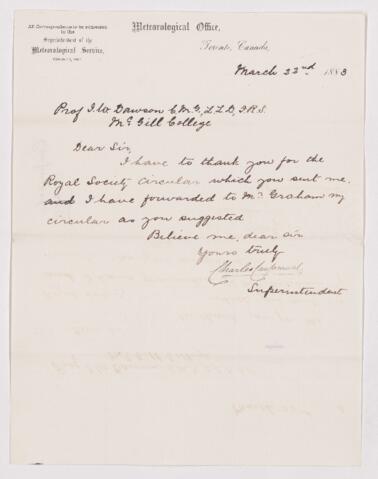 All Correspondence to be addressed
to the
Superintendent of the
Meteorological Service,
Meteorological Office,
Toronto, Canada,
March 22nd 1883
Prof J. W. Dawson C.M.G, L.L.D, F.R.S.
McGill College
Dear Sir,
I have to thank you for the
Royal Society circular which you sent me,
and I have forwarded to Mr Graham my
circular as you suggested
Believe me, dear sir
Yours truly
Charles Carpmael
Superintendent